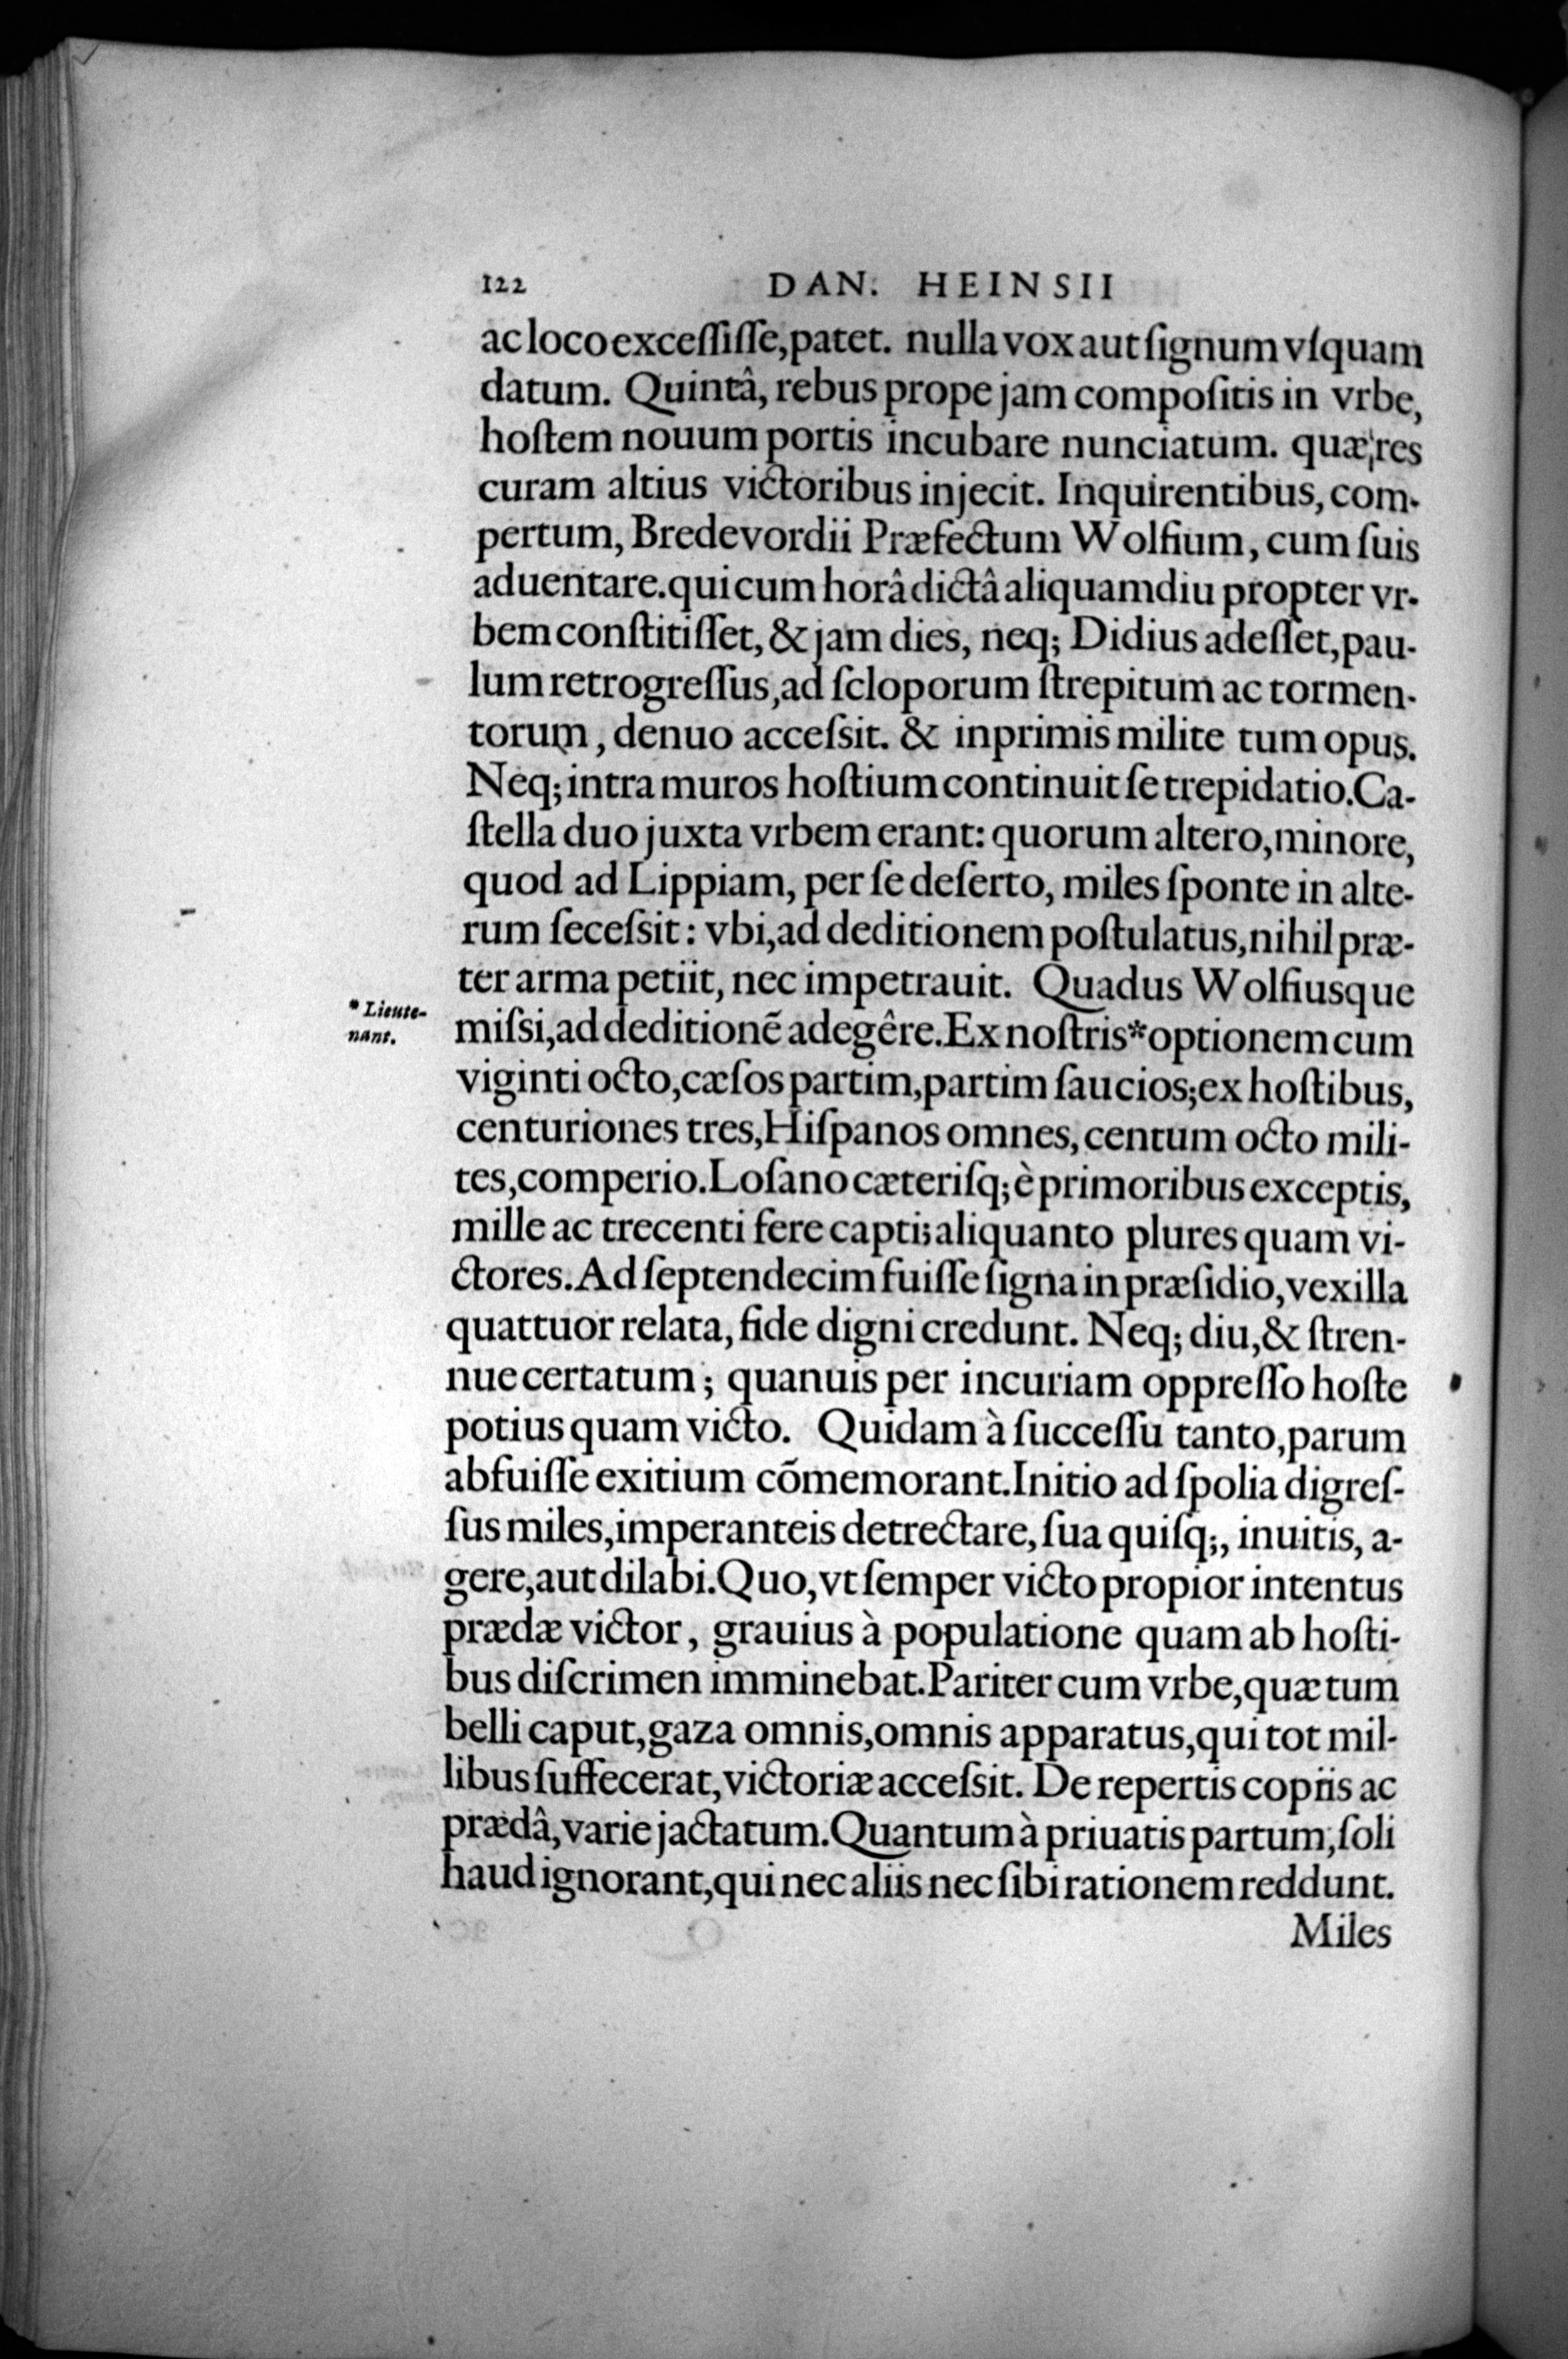 122 DAN. HEINSII
ac loco exceſſiſſe, patet. nulla vox aut ſignum vſquam
datum. Quintâ, rebus prope jam compoſitis in vrbe,
hoſtem nouum portis incubare nunciatum. quæ res
curam altius victoribus injecit. Inquirentibus, com-
pertum, Bredevordii Præfectum Wolfium, cum ſuis
aduentare. qui cum horâ dictâ aliquamdiu propter vr-
bem conſtitiſſet, & jam dies, neq; Didius adeſſet, pau-
lum retrogreſſus, ad ſcloporum ſtrepitum ac tormen-
torum, denuo acceſsit. & inprimis milite tum opus.
Neq; intra muros hoſtium continuit ſe trepidatio. Ca-
ſtella duo juxta vrbem erant: quorum altero, minore,
quod ad Lippiam, per ſe deſerto, miles ſponte in alte-
rum ſeceſsit: vbi, ad deditionem poſtulatus, nihil præ-
ter arma petiit, nec impetrauit. Quadus Wolfiusque
* Lieute-
nant.
miſsi, ad deditionē adegêre. Ex noſtris * optionem cum
viginti octo, cæſos partim, partim ſaucios; ex hoſtibus,
centuriones tres, Hiſpanos omnes, centum octo mili-
tes, comperio. Loſano cæteriſq; è primoribus exceptis,
mille ac trecenti fere capti; aliquanto plures quam vi-
ctores. Ad ſeptendecim fuiſſe ſigna in præſidio, vexilla
quattuor relata, fide digni credunt. Neq; diu, & ſtren-
nue certatum; quanuis per incuriam oppreſſo hoſte
potius quam victo. Quidam à ſucceſſu tanto, parum
abfuiſſe exitium cōmemorant. Initio ad ſpolia digreſ-
ſus miles, imperanteis detrectare, ſua quiſq;, inuitis, a-
gere, aut dilabi. Quo, vt ſemper victo propior intentus
prædæ victor, grauius à populatione quam ab hoſti-
bus diſcrimen imminebat. Pariter cum vrbe, quæ tum
belli caput, gaza omnis, omnis apparatus, qui tot mil-
libus ſuffecerat, victoriæ acceſsit. De repertis copiis ac
prædâ, varie jactatum. Quantum à priuatis partum, ſoli
haud ignorant, qui nec aliis nec ſibi rationem reddunt.
Miles